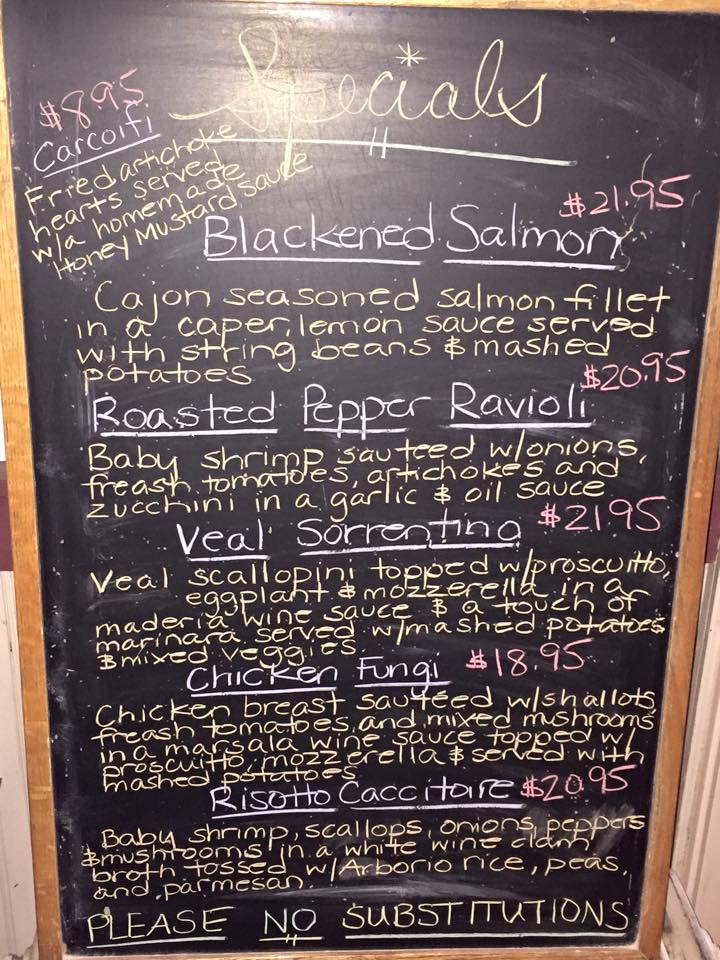 Specials
$8.95
Carcoifi
Fried artichoke
hearts served
w/a homemade
Honey Mustard Sauce
$21.95
Blackened Salmon
Cajon seasoned salmon fillet
in a caper, lemon sauce served
with string beans & mashed
potatoes
$20.95
Roasted Pepper Ravioli
Baby shrimp sauteed w/onions,
freash tomatoes, artichokes and
zucchini in a garlic & oil sauce
$21.95
Veal Sorrentino
Veal scallopini topped w/proscuitto,
eggplant & mozzerella in a
maderia wine sauce & a touch of
marinara served w/mashed potatoes
& mixed veggies
Chicken Fungi $18.95
Chicken breast sauteed w/shallots,
freash tomatoes, and mixed mushrooms
in a marsala wine sauce topped w/
proscuitto, mozzerella & served with
mashed potatoes
Risotto Caccitoire $20.95
Baby shrimp, scallops, onions, peppers
& mushrooms in a white wine clam
broth tossed w/Arborio rice, peas,
and parmesan.
PLEASE NO SUBSTITUTIONS